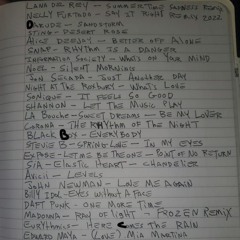 LANA DEL REY - SUMMERTIME SADNESS REMIX
NELLY FURTADO - SAY IT RIGHT REMIX 2022
DARUDE - SANDSTORM
STING - DESERT ROSE
ALICE DEEJAY - BETTER OFF ALONE
SNAP - RHYTHM IS A DANCER
INFORMATION SOCIETY - WHAT'S ON YOUR MIND
NOEL - SILENT MORNING
JON SECADA - JUST ANOTHER DAY
NIGHT AT THE ROXBURY - WHAT'S LOVE
SONIQUE - IT FEELS SO GOOD
SHANNON - LET THE MUSIC PLAY
LA BOUCHE - SWEET DREAMS - BE MY LOVER
CORONA - THE RHYTHM OF THE NIGHT
BLACK BOX - EVERYBODY
STEVIE B - SPRING LOVE - IN MY EYES
EXPOSE - LET ME BE THE ONE - POINT OF NO RETURN
SIA - ELASTIC HEART - CHANDELIER
AVICII - LEVELS
JOHN NEWMAN - LOVE ME AGAIN
BILLY IDOL - EYES WITHOUT A FACE
DAFT PUNK - ONE MORE TIME
MADONNA - RAY OF LIGHT - FROZEN REMIX
EURYTHMICS - HERE COMES THE RAIN
EDWARD MAYA - (LOVE) MIA MARTINA